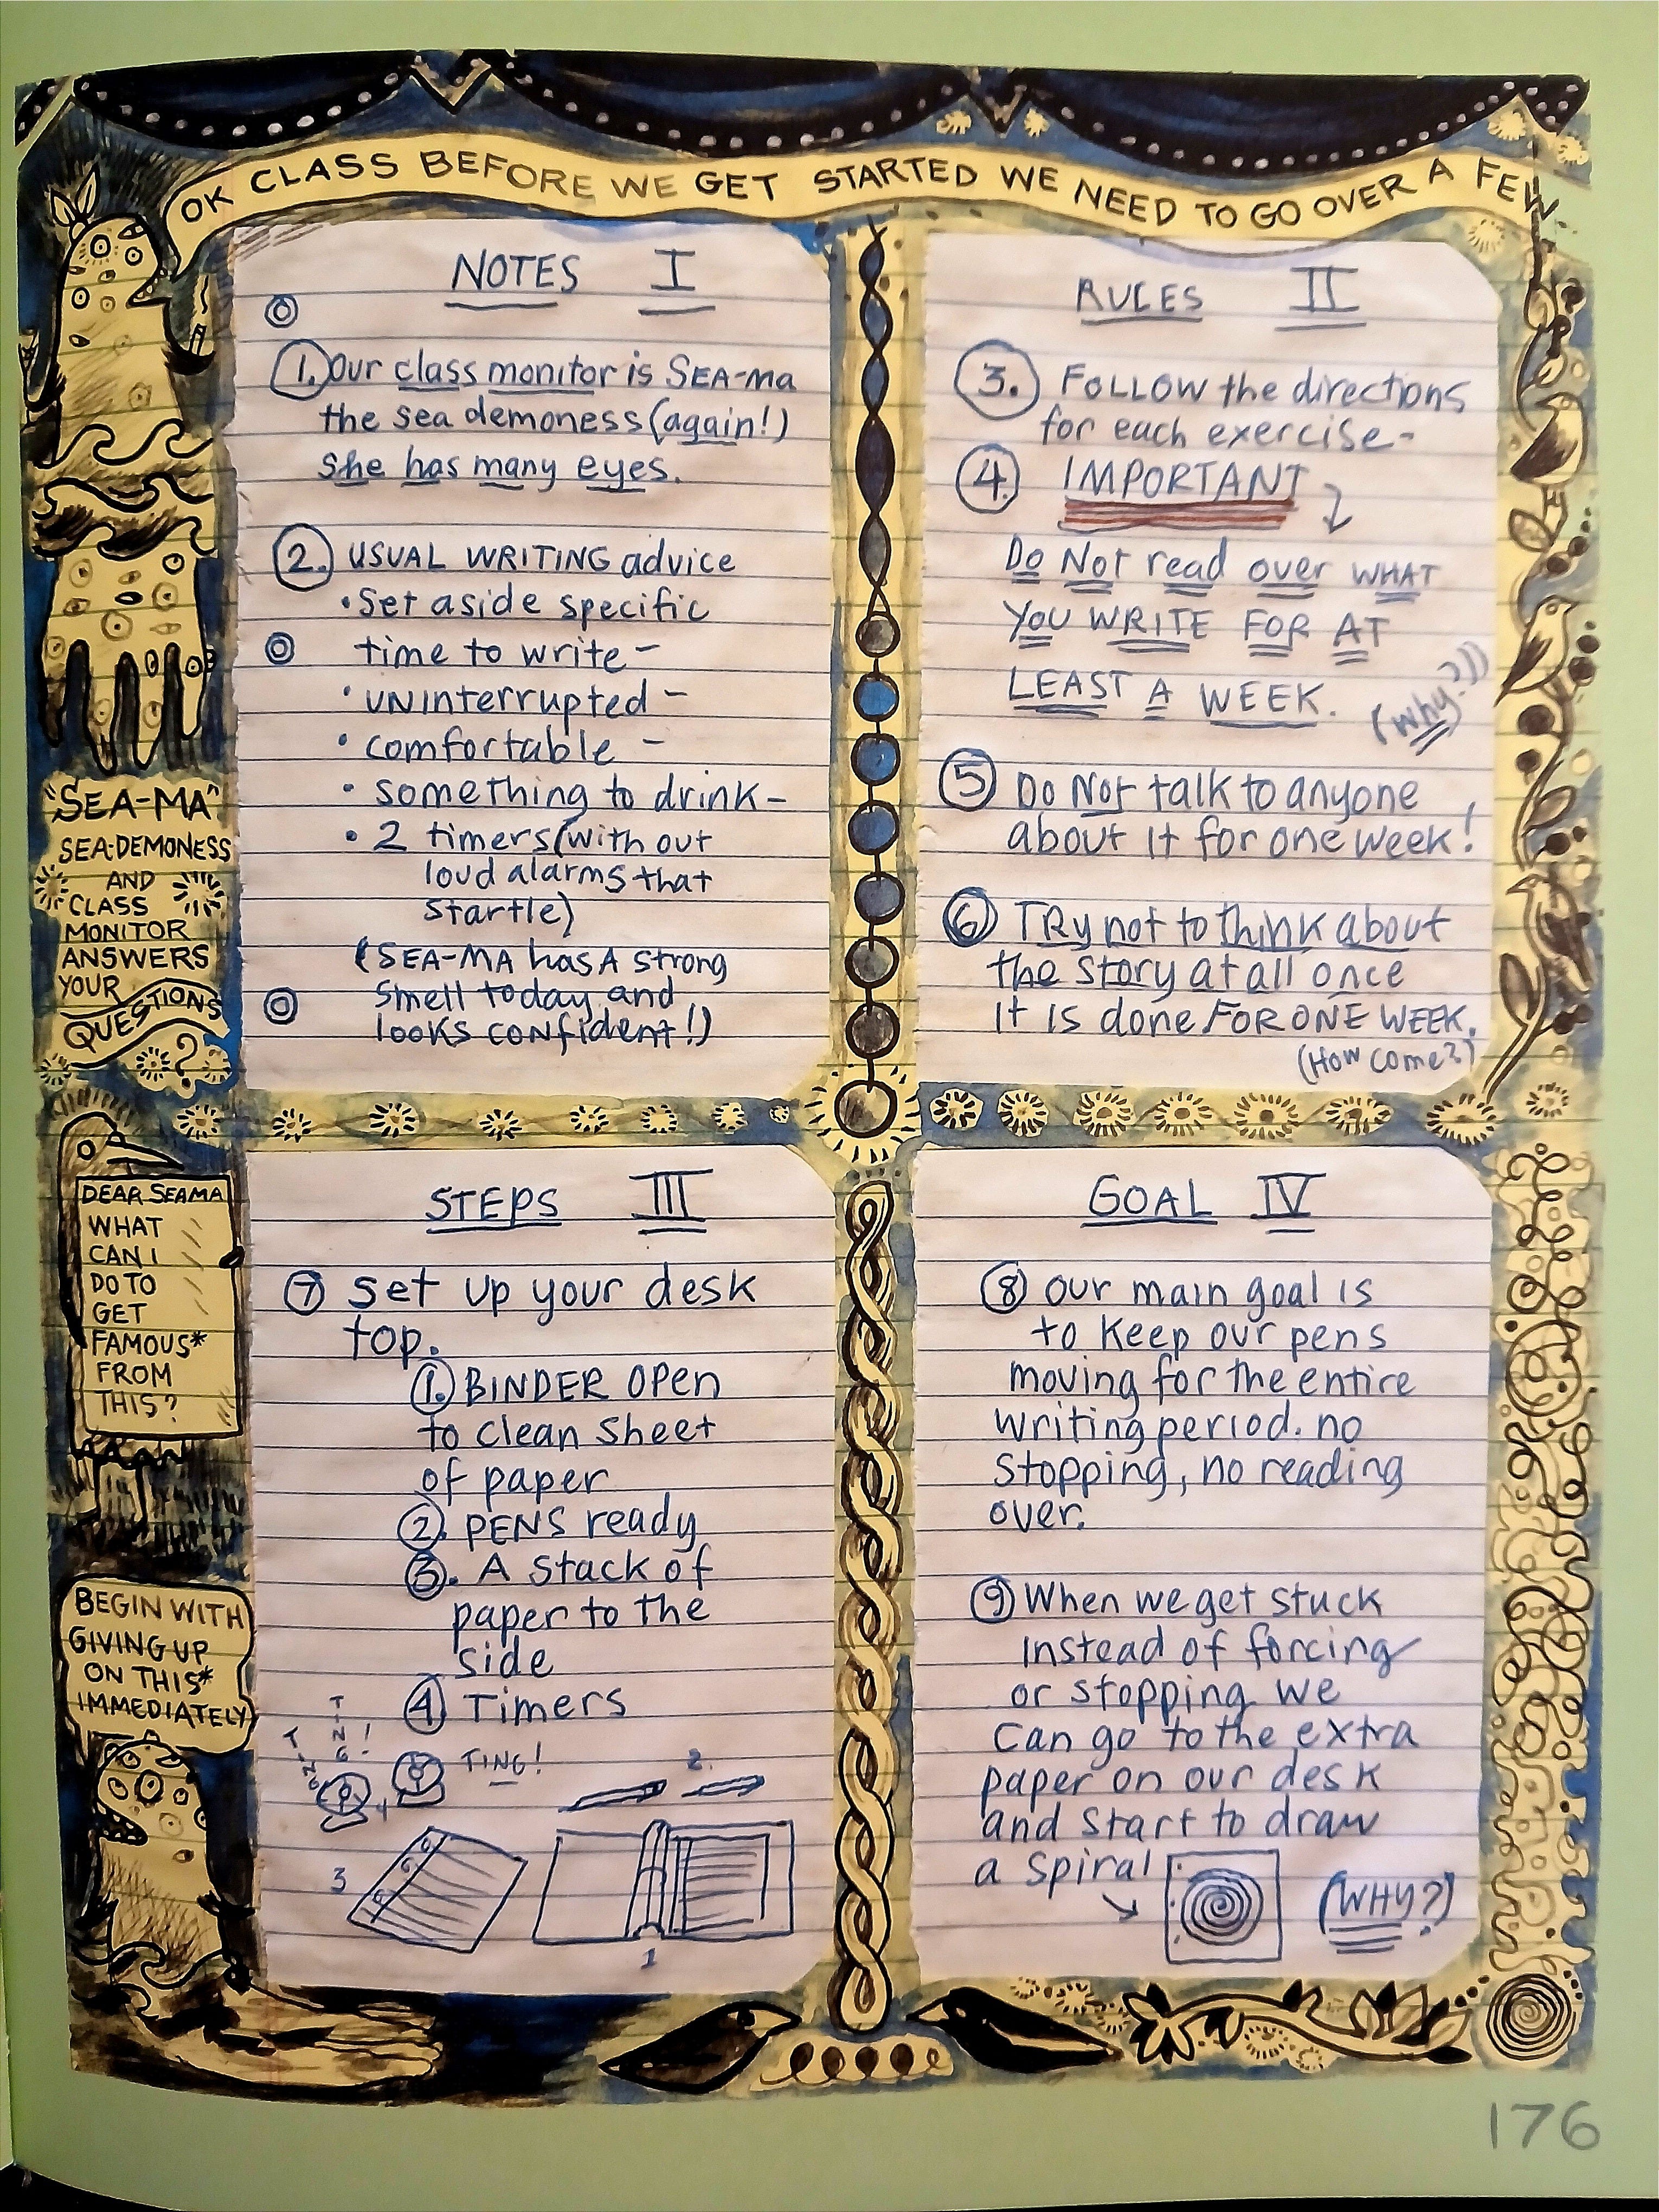 OK CLASS BEFORE WE GET STARTED WE NEED TO GO OVER A FEW
NOTES I
1. Our class monitor is SEA-MA
the sea demoness (again!)
She has many eyes.
2. USUAL WRITING advice
• Set aside specific
time to write -
• UNinterrupted -
• comfortable -
• something to drink -
• 2 timers (with out
loud alarms that
startle)
(SEA-MA has A strong
smell today and
looks confident!)
RULES II
3. FOLLOW the directions
for each exercise -
4. IMPORTANT
Do Not read over WHAT
YOU WRITE FOR AT
LEAST A WEEK.
(Why?)
5 Do Not talk to anyone
about it for one week!
6 TRy not to think about
the story at all once
It is done FOR ONE WEEK.
(How come?)
"SEA-MA"
SEA-DEMONESS
AND
CLASS
MONITOR
ANSWERS
YOUR
QUESTIONS
?
DEAR SEAMA
WHAT
CAN I
DO TO
GET
FAMOUS*
FROM
THIS?
BEGIN WITH
GIVING UP
ON THIS*
IMMEDIATELY
STEPS III
7 set up your desk
top.
1. BINDER open
to clean sheet
of paper
2. PENS ready
3. A stack of
paper to the
side
4 Timers
TING!
TING
TING!
4
2.
3
1
GOAL IV
8 our main goal is
to keep our pens
moving for the entire
writing period. no
stopping, no reading
over.
9 When we get stuck
instead of forcing
or stopping we
can go to the extra
paper on our desk
and start to draw
a spiral
(WHY?)
176